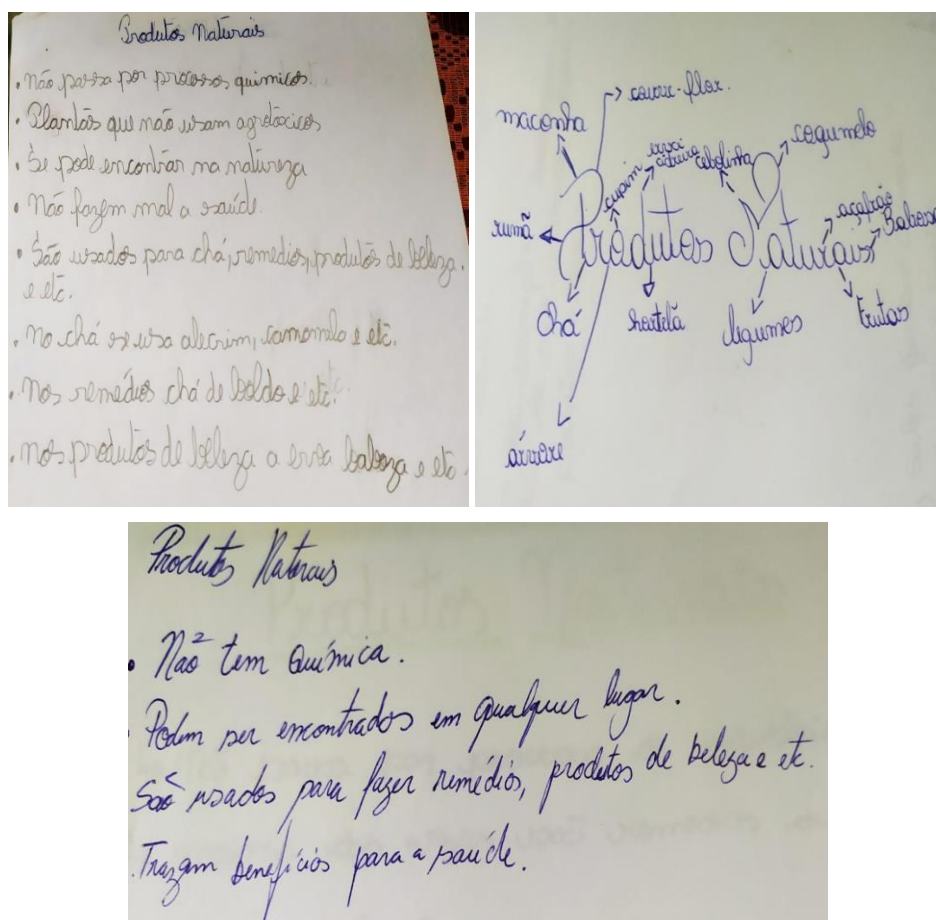 Produtos Naturais
• Não passa por processos quimicos.
• Plantãs que não usam agrotoxicos
• Se pode encontrar na natureza
• Não fazem mal a saúde.
• São usados para chá, remedios, produtõs de beleza.
e etc.
• No chá se usa alecrim, camomela e etc.
• Nos remédios chá de boldo e etc.
• nos produtõs de beleza a erva baboza e etc
couve-flor.
maconha
cogumelo
cupim
erva
cidreira
cebolinha
açafrão
Babosa
rumã
Produtos Naturais
chá
hortelã
legumes
frutas
árvore
Produtos Naturais
• Não tem Química.
• Podem ser encontrados em qualquer lugar.
São usados para fazer remédios, produtos de beleza e etc.
. Trazem benefícios para a saúde.